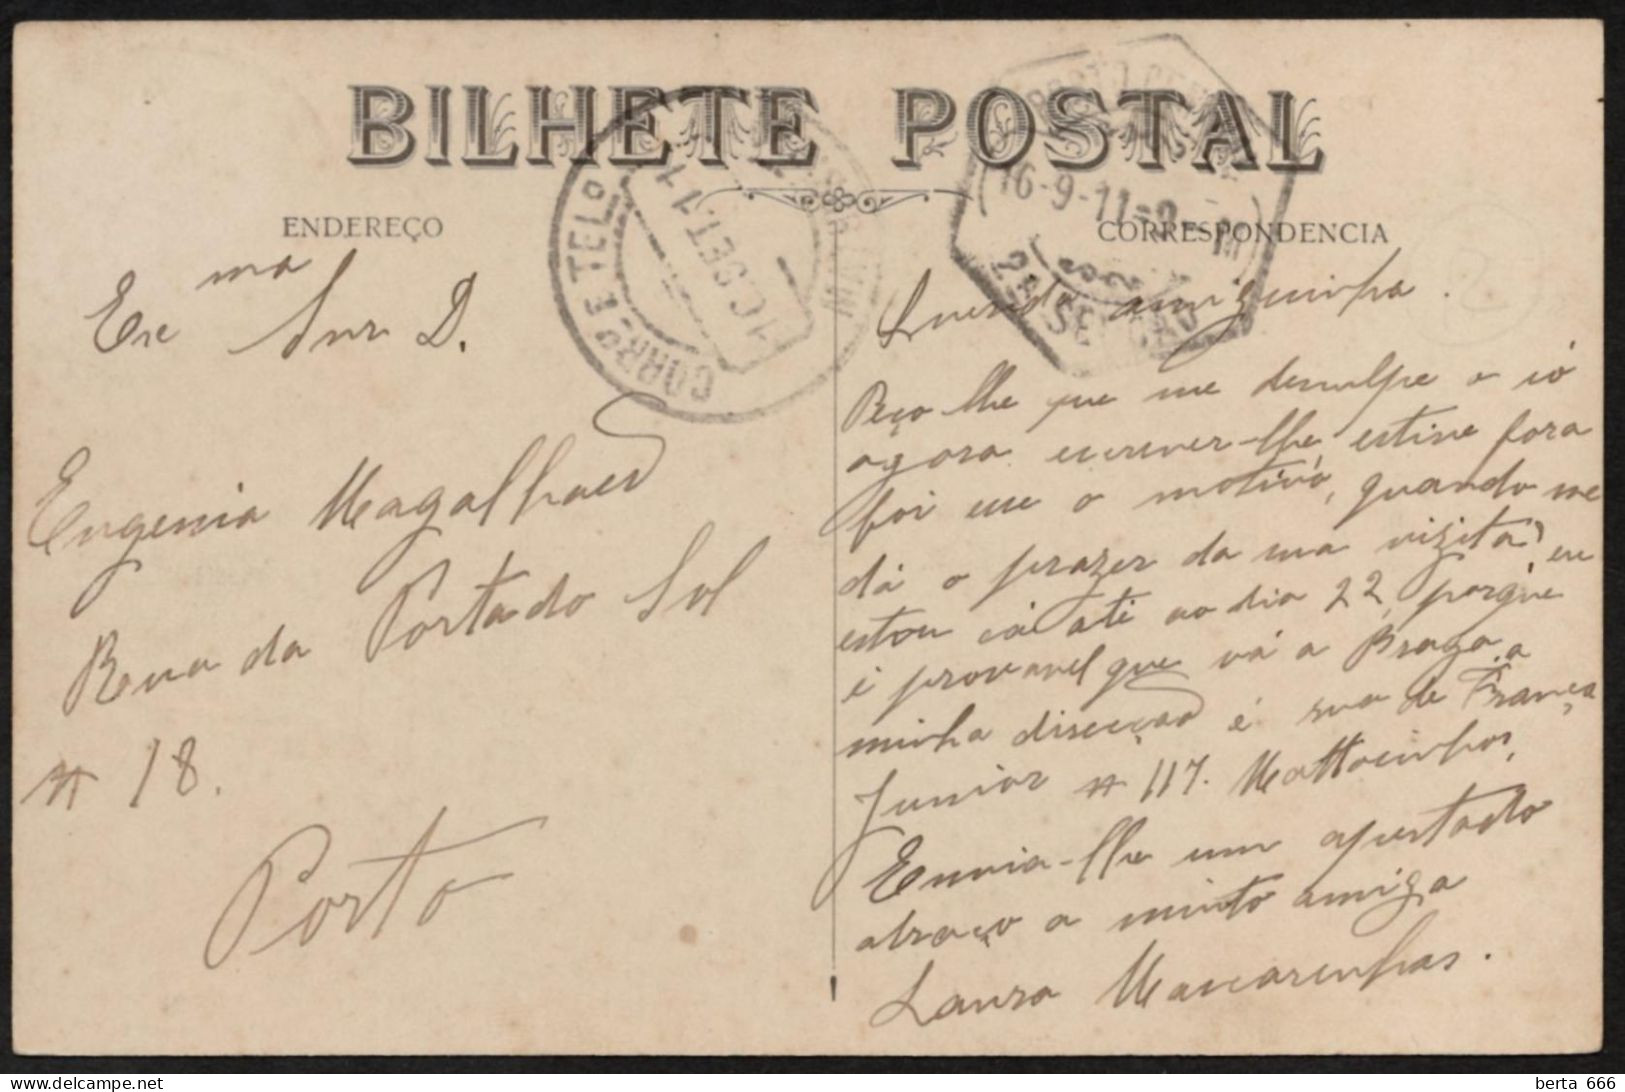 BILHETE POSTAL
ENDEREÇO
Exma Snr D.
Eugenia Magalhaes
Rua da Porta do Sol
n 18.
Porto
CORRO E TELO
16 SET 11
16-9-11
2ª SE
CORRESPONDENCIA
amiguinha.
Peço-lhe que me desculpe o só
agora escrever-lhe, estive fora
foi esse o motivo, quando me
dá o prazer da sua vizita? eu
estou cá até ao dia 22, porque
é provavel que vá a Braga, a
minha direcção é rua de França
Junior n 117. Mattozinhos,
Envia-lhe um apertado
abraço a muito amiga
Laura Mascarenhas.
berta 666